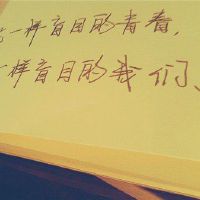 一样盲目的青春,
样盲目的我们、